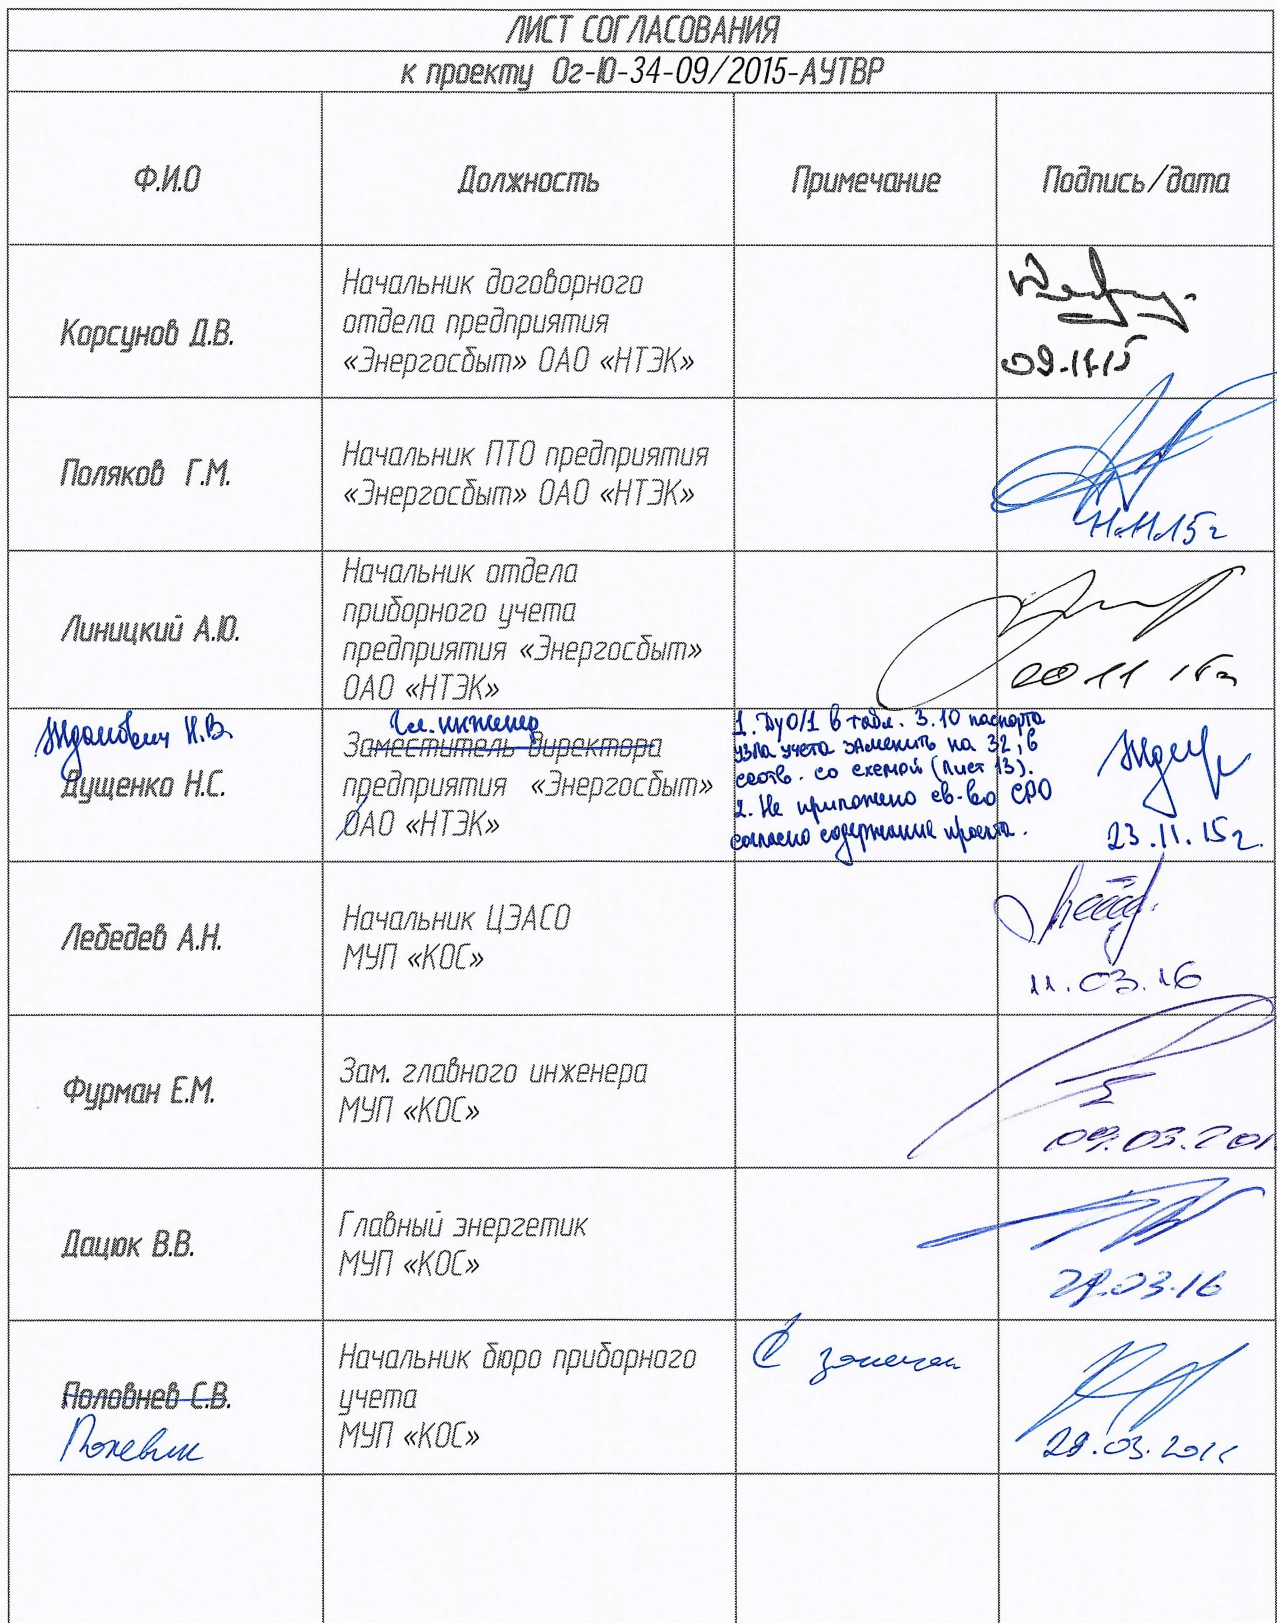 ЛИСТ СОГЛАСОВАНИЯ
к проекту Ог-Ю-34-09/2015-АУТВР
Ф.И.О
Должность
Примечание
Подпись/дата
Корсунов Д.В.
Начальник договорного
отдела предприятия
«Энергосбыт» ОАО «НТЭК»
09.11.15
Поляков Г.М.
Начальник ПТО предприятия
«Энергосбыт» ОАО «НТЭК»
11.11.15г
Линицкий А.Ю.
Начальник отдела
приборного учета
предприятия «Энергосбыт»
ОАО «НТЭК»
20 11 15г
Жданович Н.В.
Дущенко Н.С.
Гл. инженер
Заместитель директора
предприятия «Энергосбыт»
ОАО «НТЭК»
1. Ду О/1 в табл. 3.10 паспорта
узла учета заменить на 32, в
соотв. со схемой (лист 13).
2. Не приложено св-во СРО
согласно содержание проекта.
23.11.15г.
Лебедев А.Н.
Начальник ЦЭАСО
МУП «КОС»
11.03.16
Фурман Е.М.
Зам. главного инженера
МУП «КОС»
09.03.201
Дацюк В.В.
Главный энергетик
МУП «КОС»
29.03.16
Половнев С.В.
Начальник бюро приборного
учета
МУП «КОС»
С
28.03.201